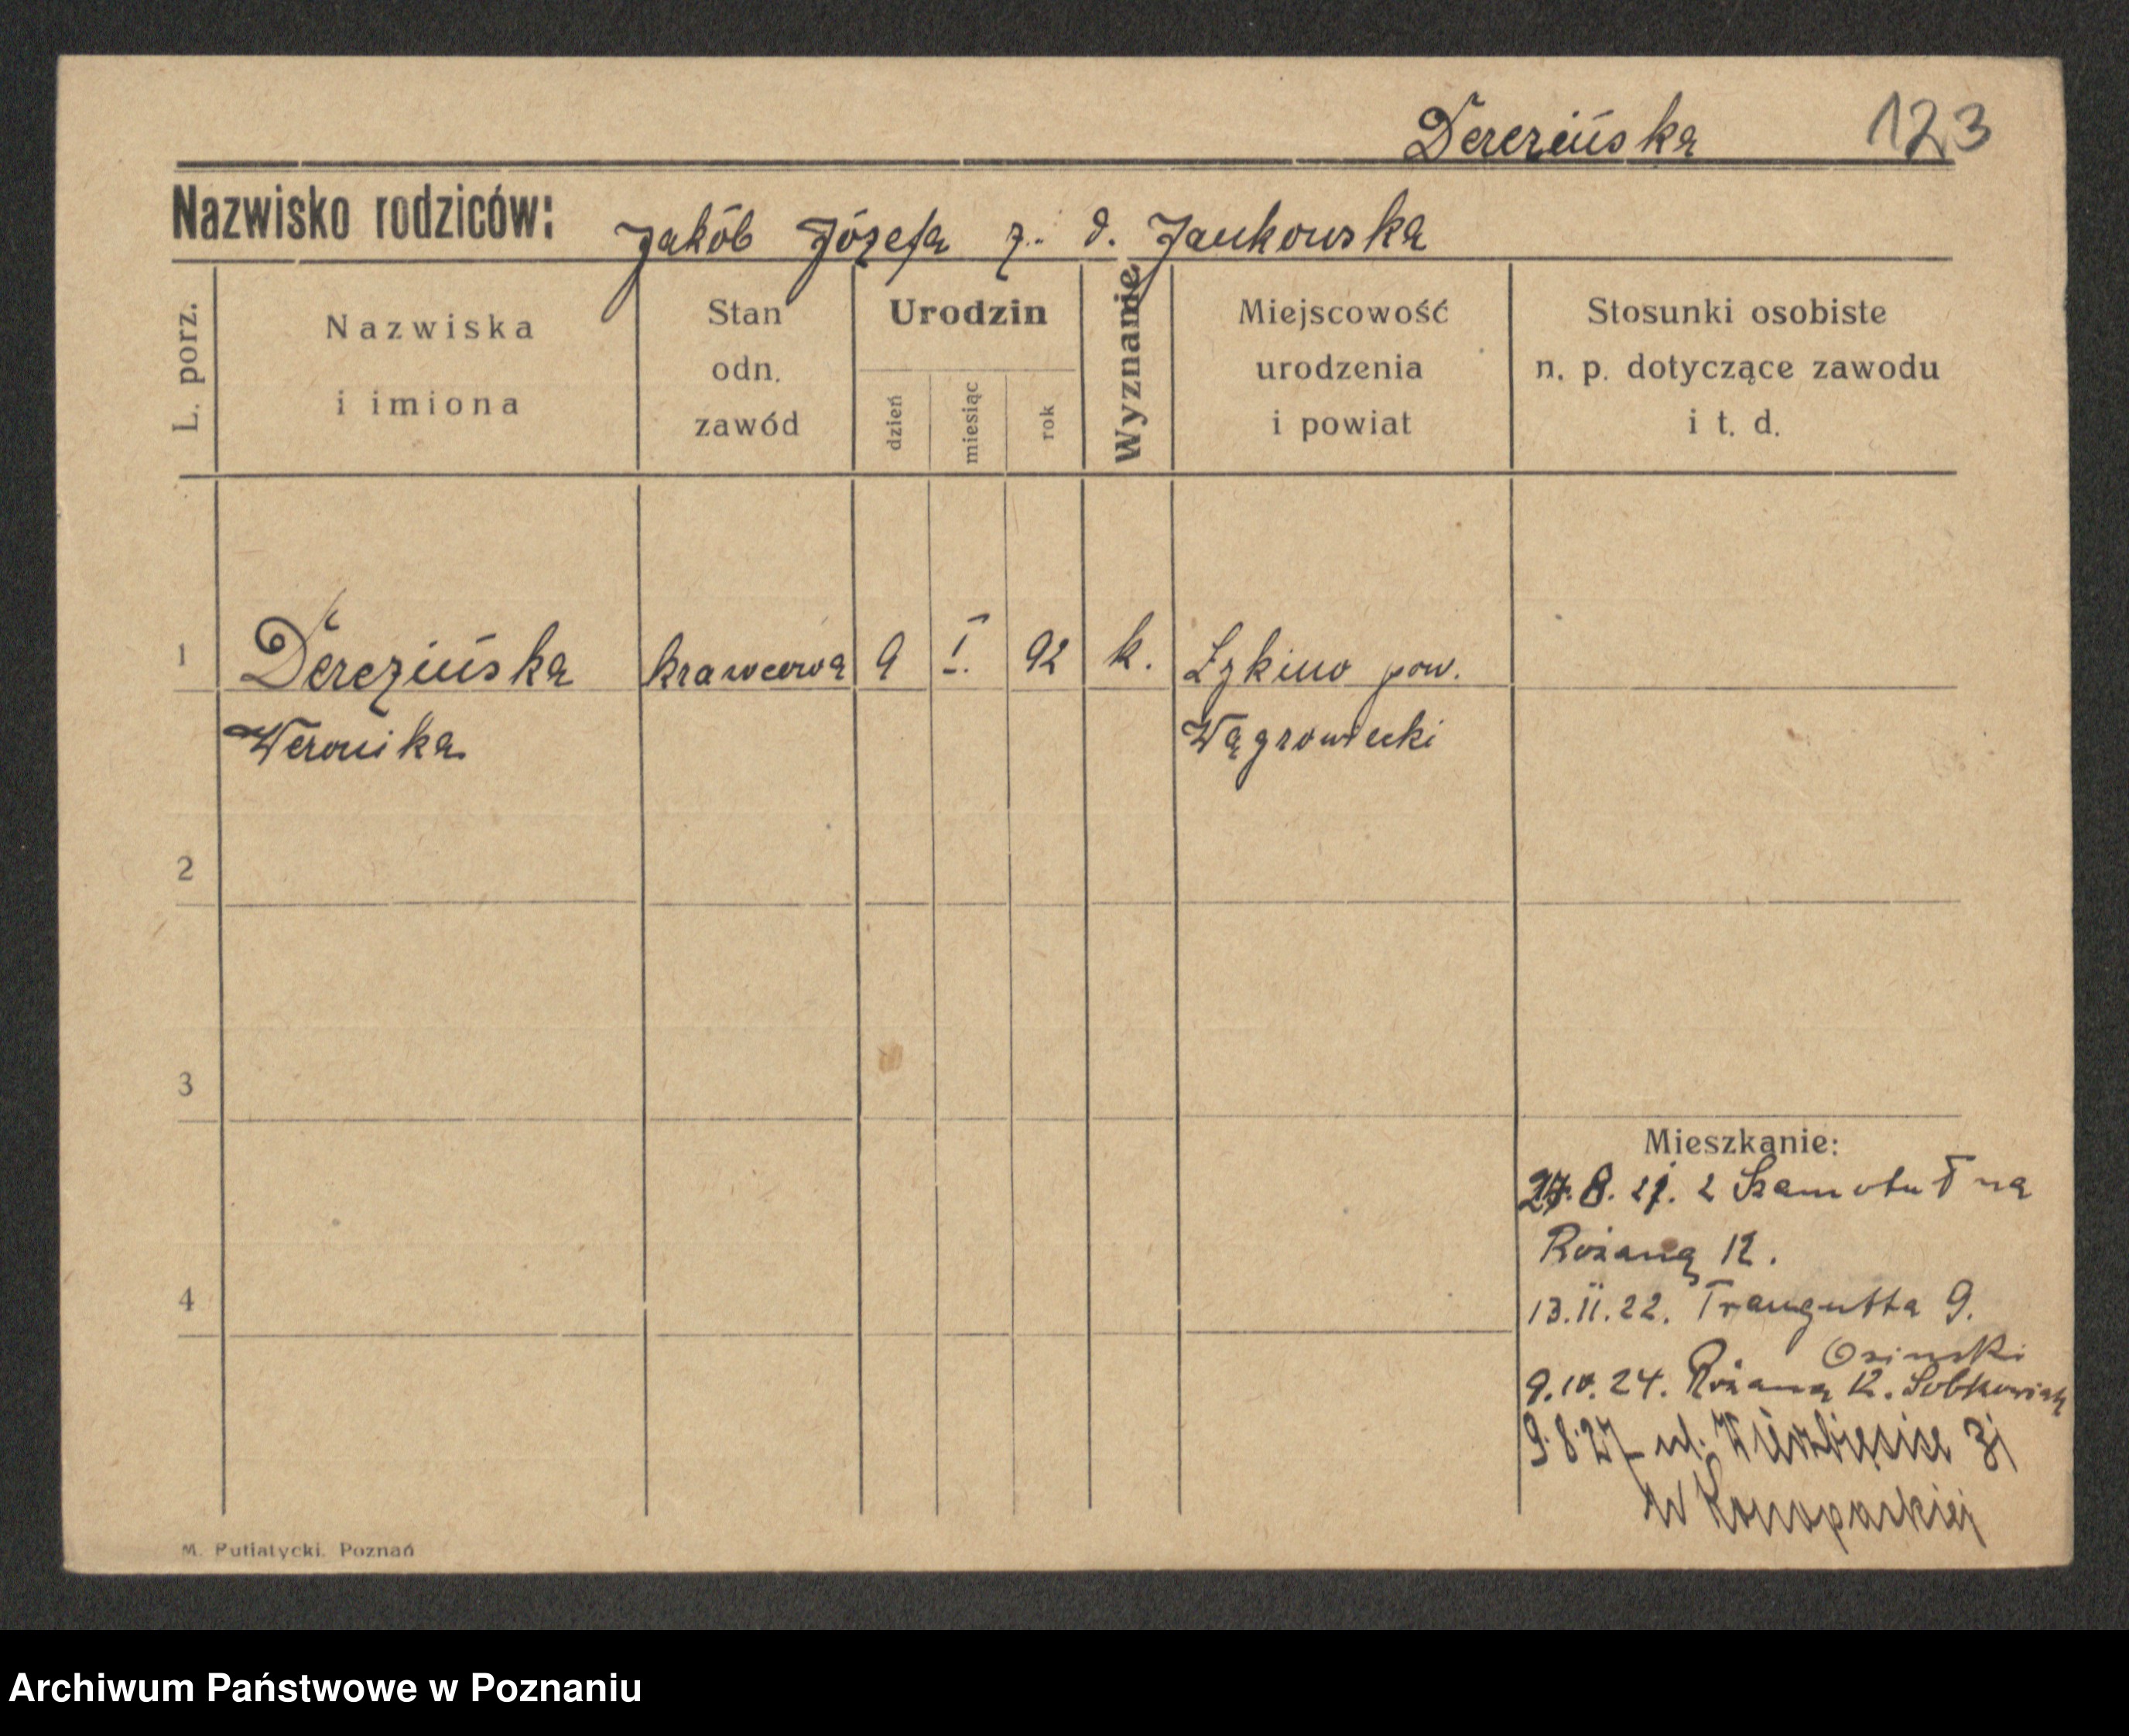 Derezińska 123
Nazwisko rodziców: Jakób Józefa z. d. Jankowska
L. porz.
Nazwiska
i imiona
Stan
odn.
zawód
Urodzin
dzień
miesiąc
rok
Wyznanie
Miejscowość
urodzenia
i powiat
Stosunki osobiste
n. p. dotyczące zawodu
i t. d.
1 Derezińska krawcowa 9 I. 92 k. Łzkino pow.
Weronika Wągrowiecki
2
3
Mieszkanie:
8. 21. z Szamotuł na
Rożaną 12.
4
13.II.22. Traugutta 9.
Osinski
9.10.24. Rożaną 12. Sobkowiak
9.8.27 ul. Wierzbięcice
M. Putiatycki. Poznań
Archiwum Państwowe w Poznaniu